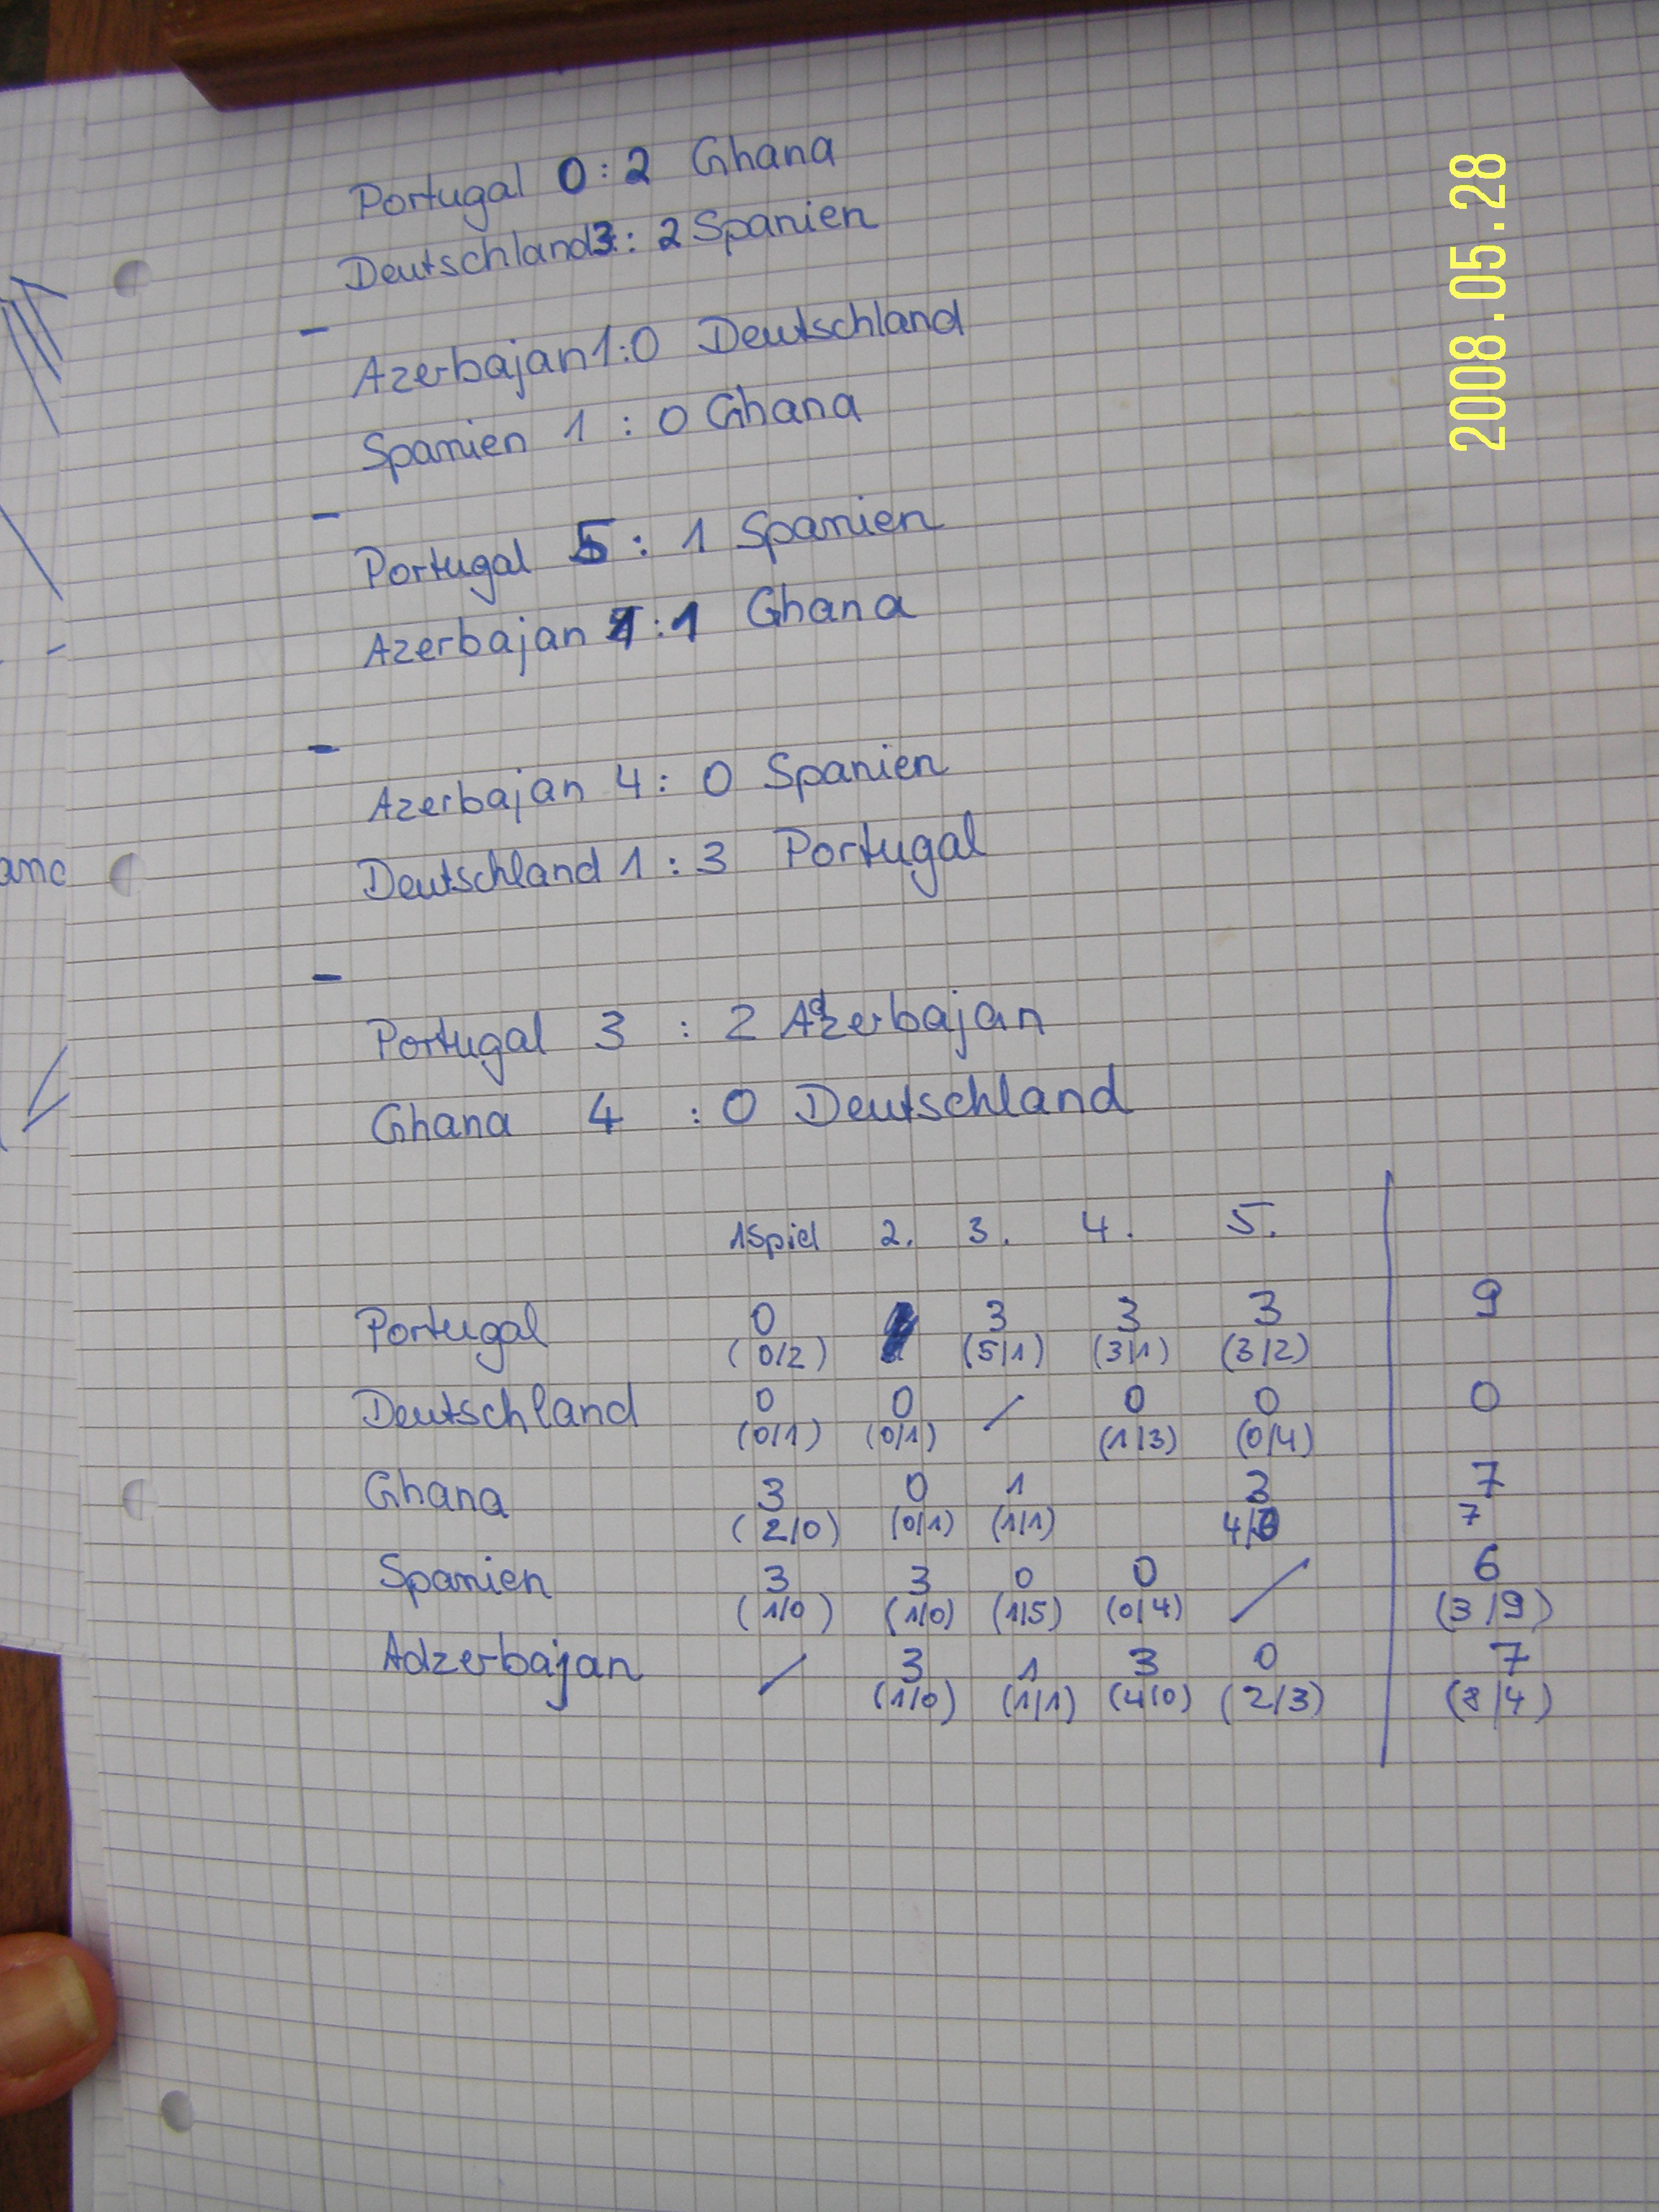 Portugal 0:2 Ghana
Deutschland 3: 2 Spanien
-
Azerbajan 1:0 Deutschland
Spanien 1 : 0 Ghana
-
Portugal 5: 1 Spanien
Azerbajan 1:1 Ghana
-
Azerbajan 4: 0 Spanien
Deutschland 1 : 3 Portugal
-
Portugal 3 : 2 Adzerbajan
Ghana 4 : 0 Deutschland
1Spiel 2. 3. 4. 5.
Portugal 0 3 3 3 9
(0/2) (5/1) (3/1) (3/2)
Deutschland 0 0 / 0 0 0
(0/1) (0/1) (1/3) (0/4)
Ghana 3 0 1 3 7
(2/0) (0/1) (1/1) 4/0 7
Spanien 3 3 0 0 / 6
(1/0) (1/0) (1/5) (0/4) (3/9)
Adzerbajan / 3 1 3 0 7
(1/0) (1/1) (4/0) (2/3) (8/4)
2008.05.28